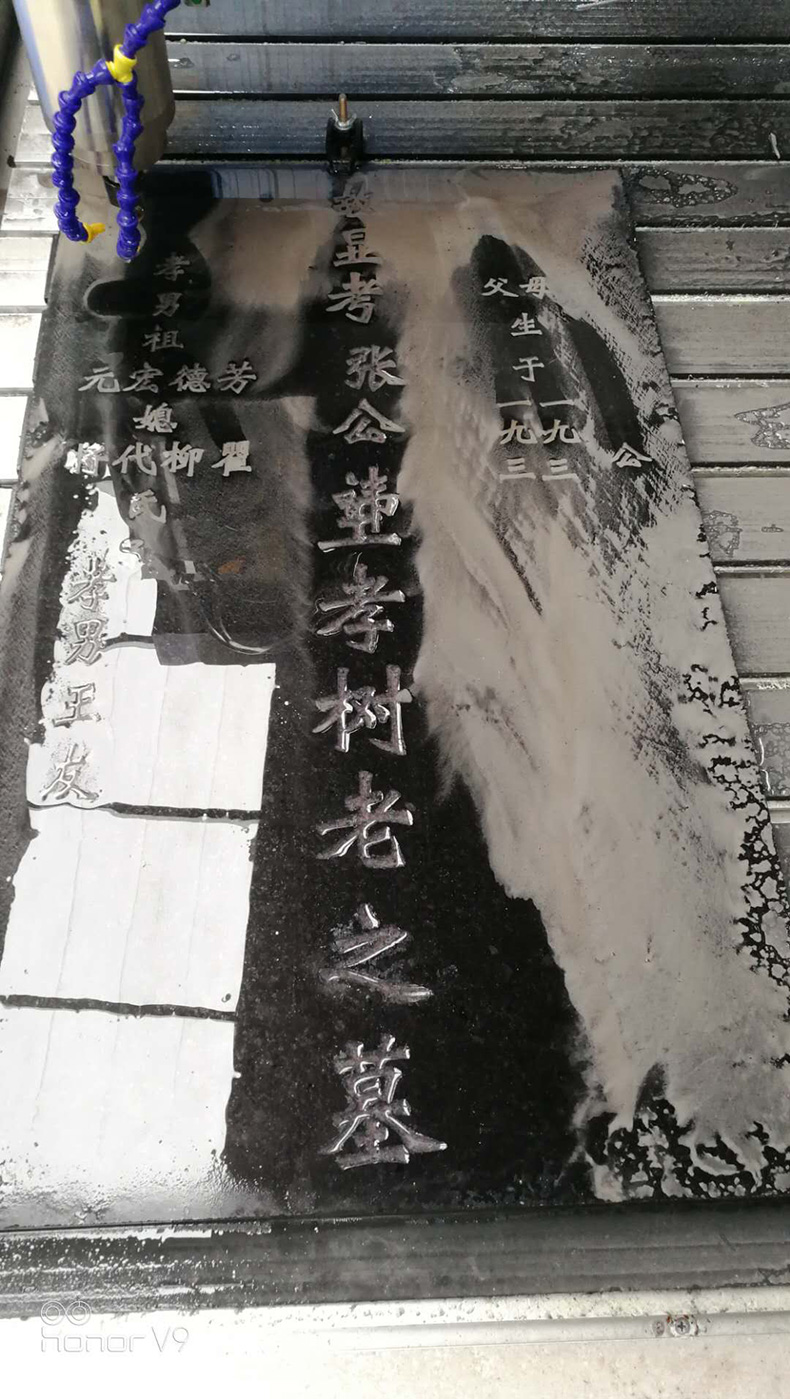 公
父母
生
于
一一
九九
三三
故显考 张公 孝树老之墓
孝
男
祖
元宏德芳
媳
代柳瞿
氏
孝男王友
honor V9